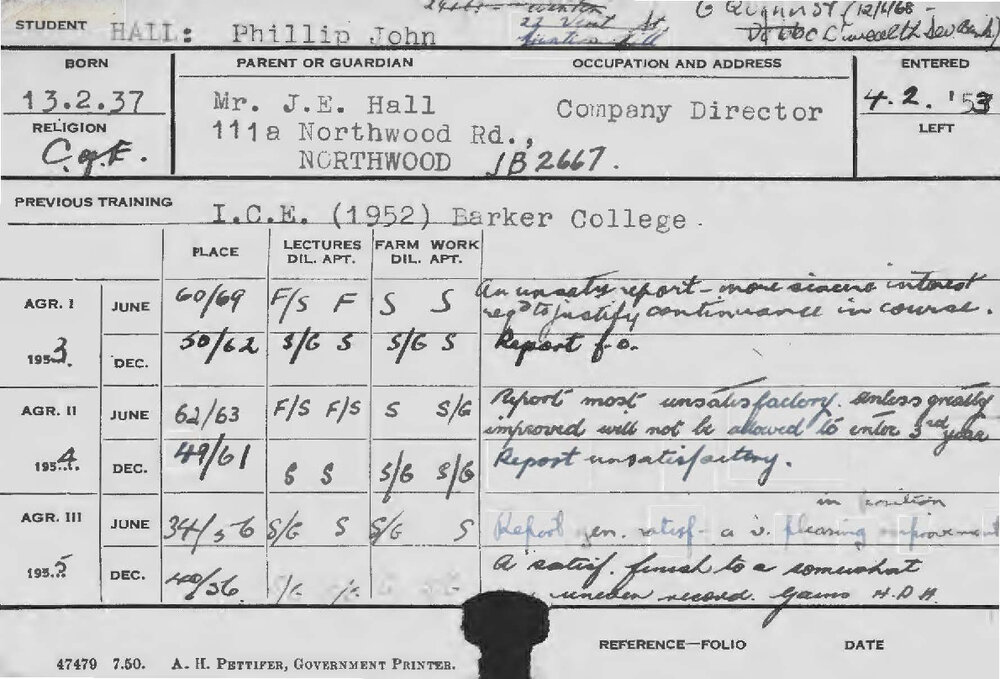 STUDENT HALL: Phillip John
22 Vint St
(12/6/68 -
C'wealth Dev. Bank)
BORN PARENT OR GUARDIAN OCCUPATION AND ADDRESS ENTERED
13.2.37 Mr. J.E. Hall Company Director 4.2.'53
RELIGION 111a Northwood Rd., LEFT
C of E. NORTHWOOD JB2667.
PREVIOUS TRAINING I.C.E. (1952) Barker College.
PLACE LECTURES DIL. APT. FARM WORK DIL. APT.
AGR. I JUNE 60/69 F/S F S S An unsaty report - more sincere interest
reqd to justify continuance in course.
1953. DEC. 50/62 S/G S S/G S Report f.o.
AGR. II JUNE 62/63 F/S F/S S S/G Report most unsatisfactory. Unless greatly
improved will not be allowed to enter 3rd year
1954. DEC. 49/61 S S S/G S/G Report unsatisfactory.
in position
AGR. III JUNE 34/56 S/G S S/G S Report gen. satisf - a v. pleasing improvement
1955. DEC. 40/56. A satisf. finish to a somewhat
uneven record. Gains H.D.A.
REFERENCE—FOLIO DATE
47479 7.50. A. H. PETTIFER, GOVERNMENT PRINTER.